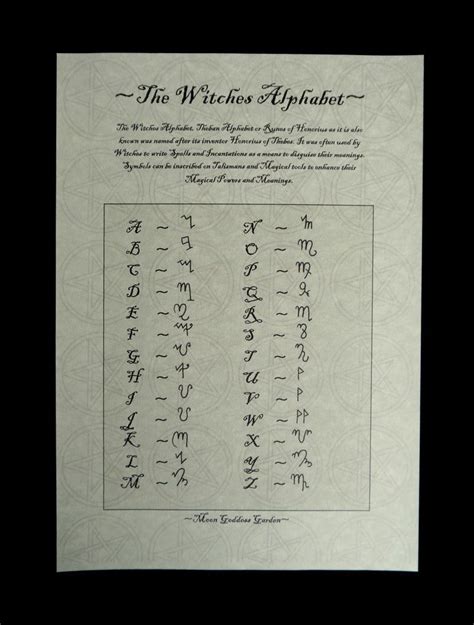 ~The Witches Alphabet~
The Witches Alphabet, Theban Alphabet or Runes of Honorius as it is also
known was named after its inventor Honorius of Thebes. It was often used by
Witches to write Spells and Incantations as a means to disguise their meanings.
Symbols can be inscribed on Talismans and Magical tools to enhance their
Magical Powers and Meanings.
A ~
B ~
C ~
D ~
E ~
F ~
G ~
H ~
I ~
J ~
K ~
L ~
M ~
N ~
O ~
P ~
Q ~
R ~
S ~
T ~
U ~
V ~
W ~
X ~
Y ~
Z ~
~Moon Goddess Garden~